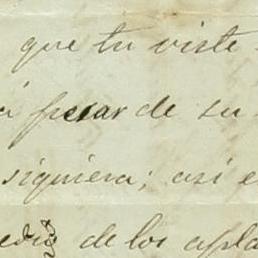 que tu viste
á pesar de su
siquiera; asi e
edio de los apla